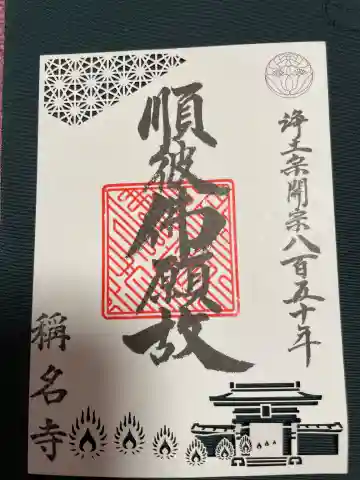 浄土宗開宗八百五十年
順彼佛願故
稱名寺